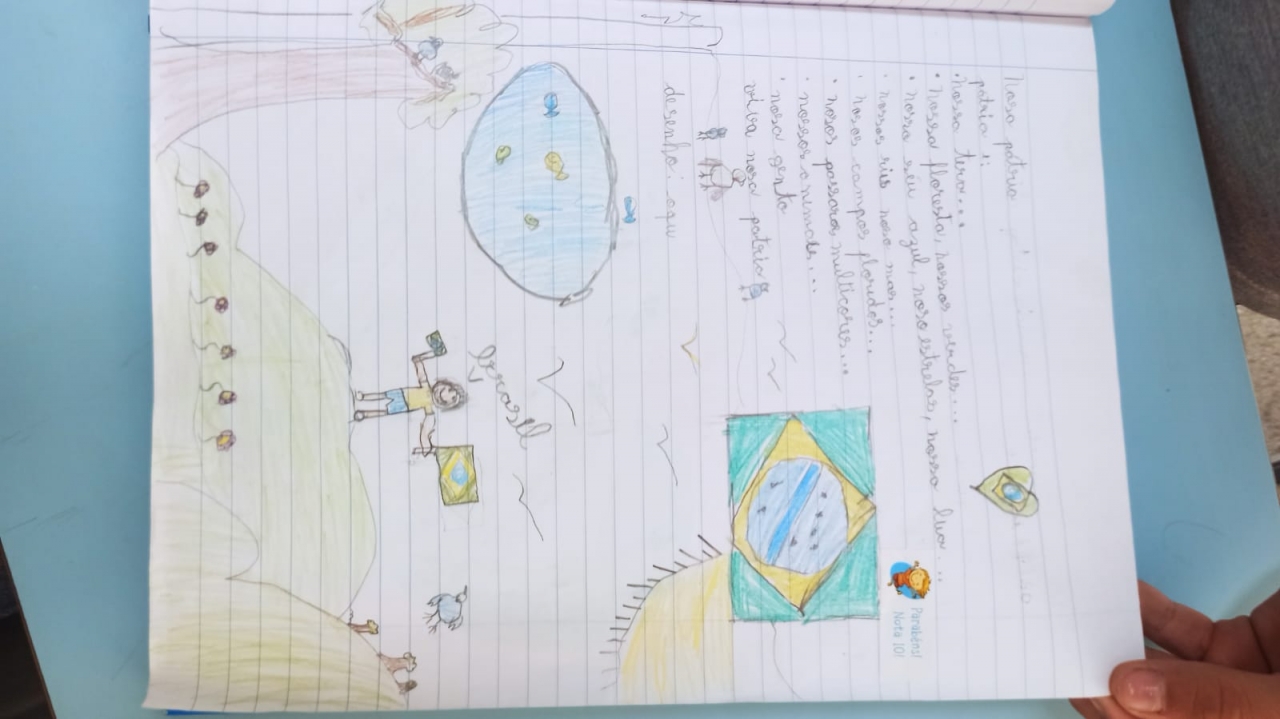 nosa pátria
pátria:
• nossa tera...
• nossa floresta, nossos verdes...
• nosso séu azul, noso estrelas, nossa lua...
• nossos ris noso mar...
• nosos campos floridos...
• nosos passaros multicores...
• nossos animais...
• nosa gente
viva nosa patria
desenho: aqui
brasil
Parabéns!
Nota 10!